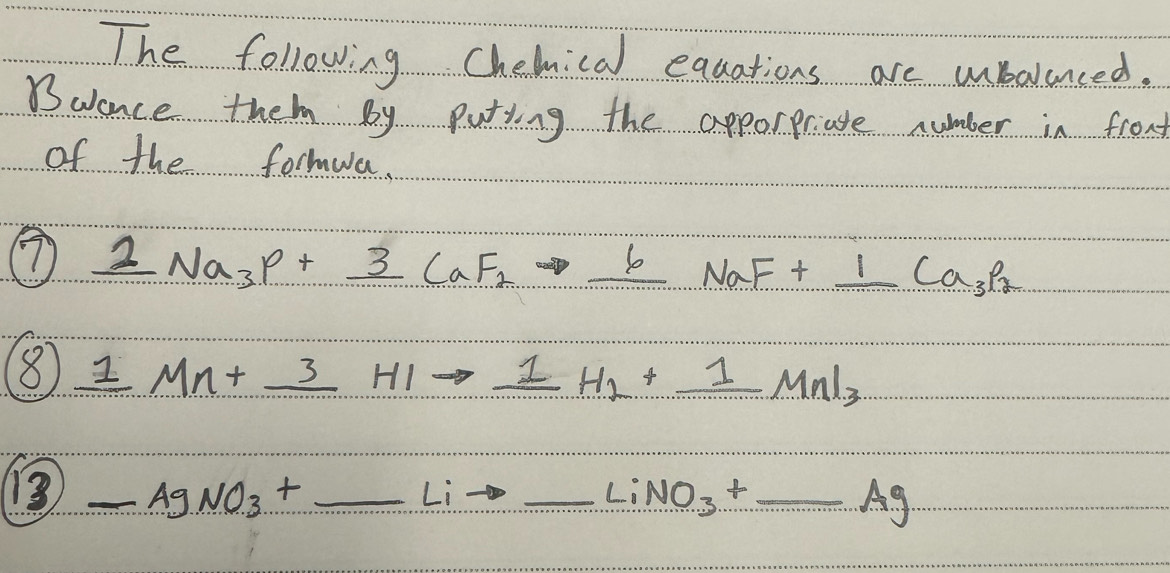 The following Chemical equations are unbalanced.
Balance them by putting the apporpriate number in front
of the formula.
⑦ 2 Na₃P + 3 CaF₂ → 6 NaF + 1 Ca₃P₂
⑧ 1 Mn + 3 HI → 1 H₂ + 1 MnI₃
⑬ __ AgNO₃ + __ Li → __ LiNO₃ + __ Ag